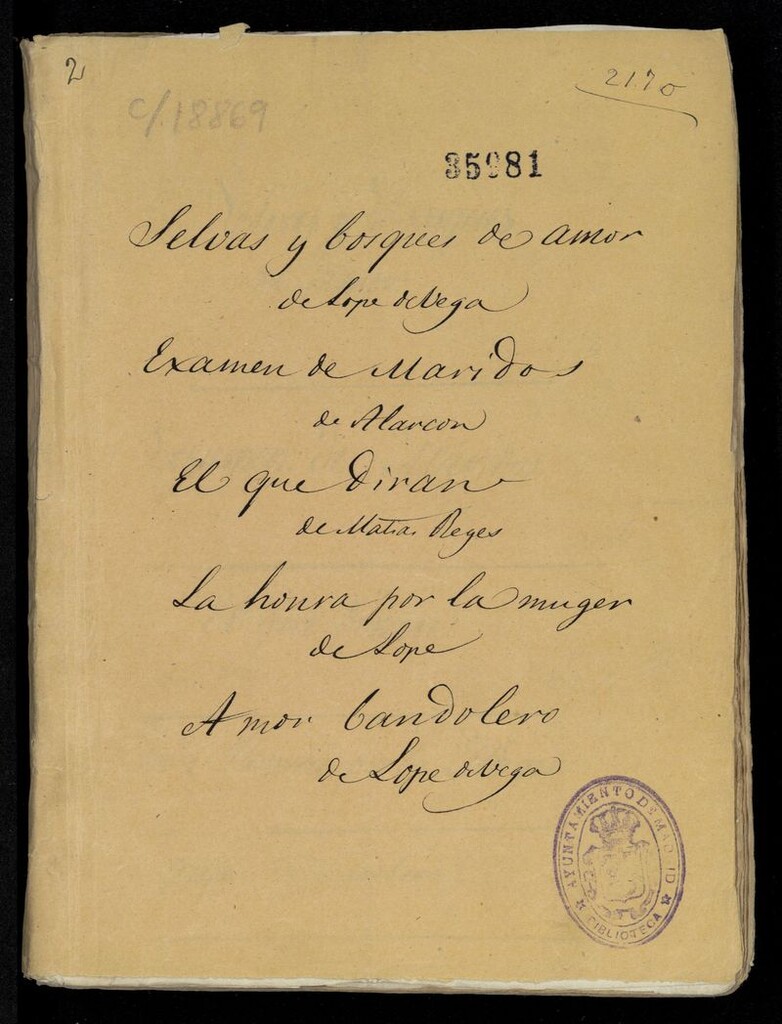 2
21.70
C/.18869
35981
Selvas y bosques de amor
de Lope de Vega
Examen de Maridos
de Alarcon
El que diran
de Matias Reyes
La honra por la muger
de Lope
Amor bandolero
de Lope de Vega
AYUNTAMIENTO DE MADRID
BIBLIOTECA